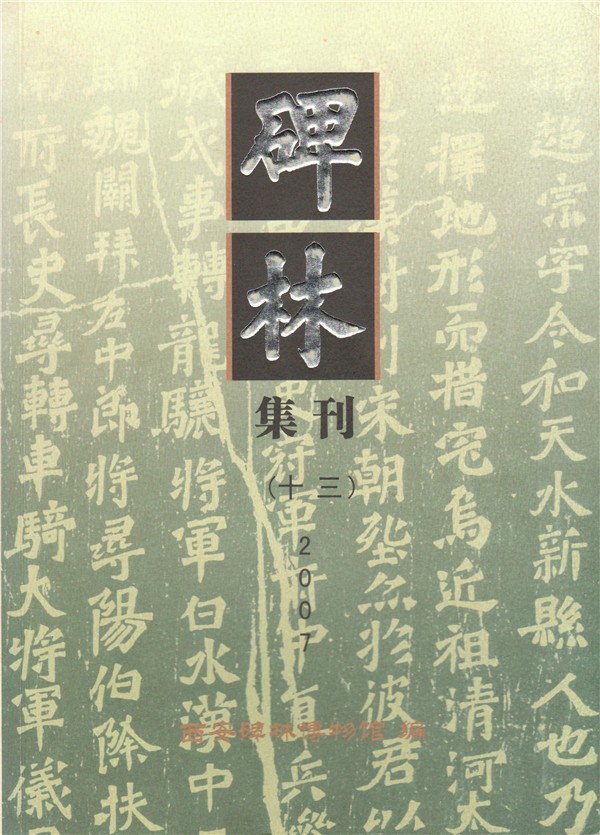 碑林
集刊
(十三)
2007
西安碑林博物馆 编
超宗字令和天水新縣人也乃
擇地形而措宅焉近祖清河太
宋朝
於彼君以
軍
有兵
事轉龍驤將軍白水漢中
魏闕拜左中郎將尋陽伯除扶
府長史尋轉車騎大將軍儀